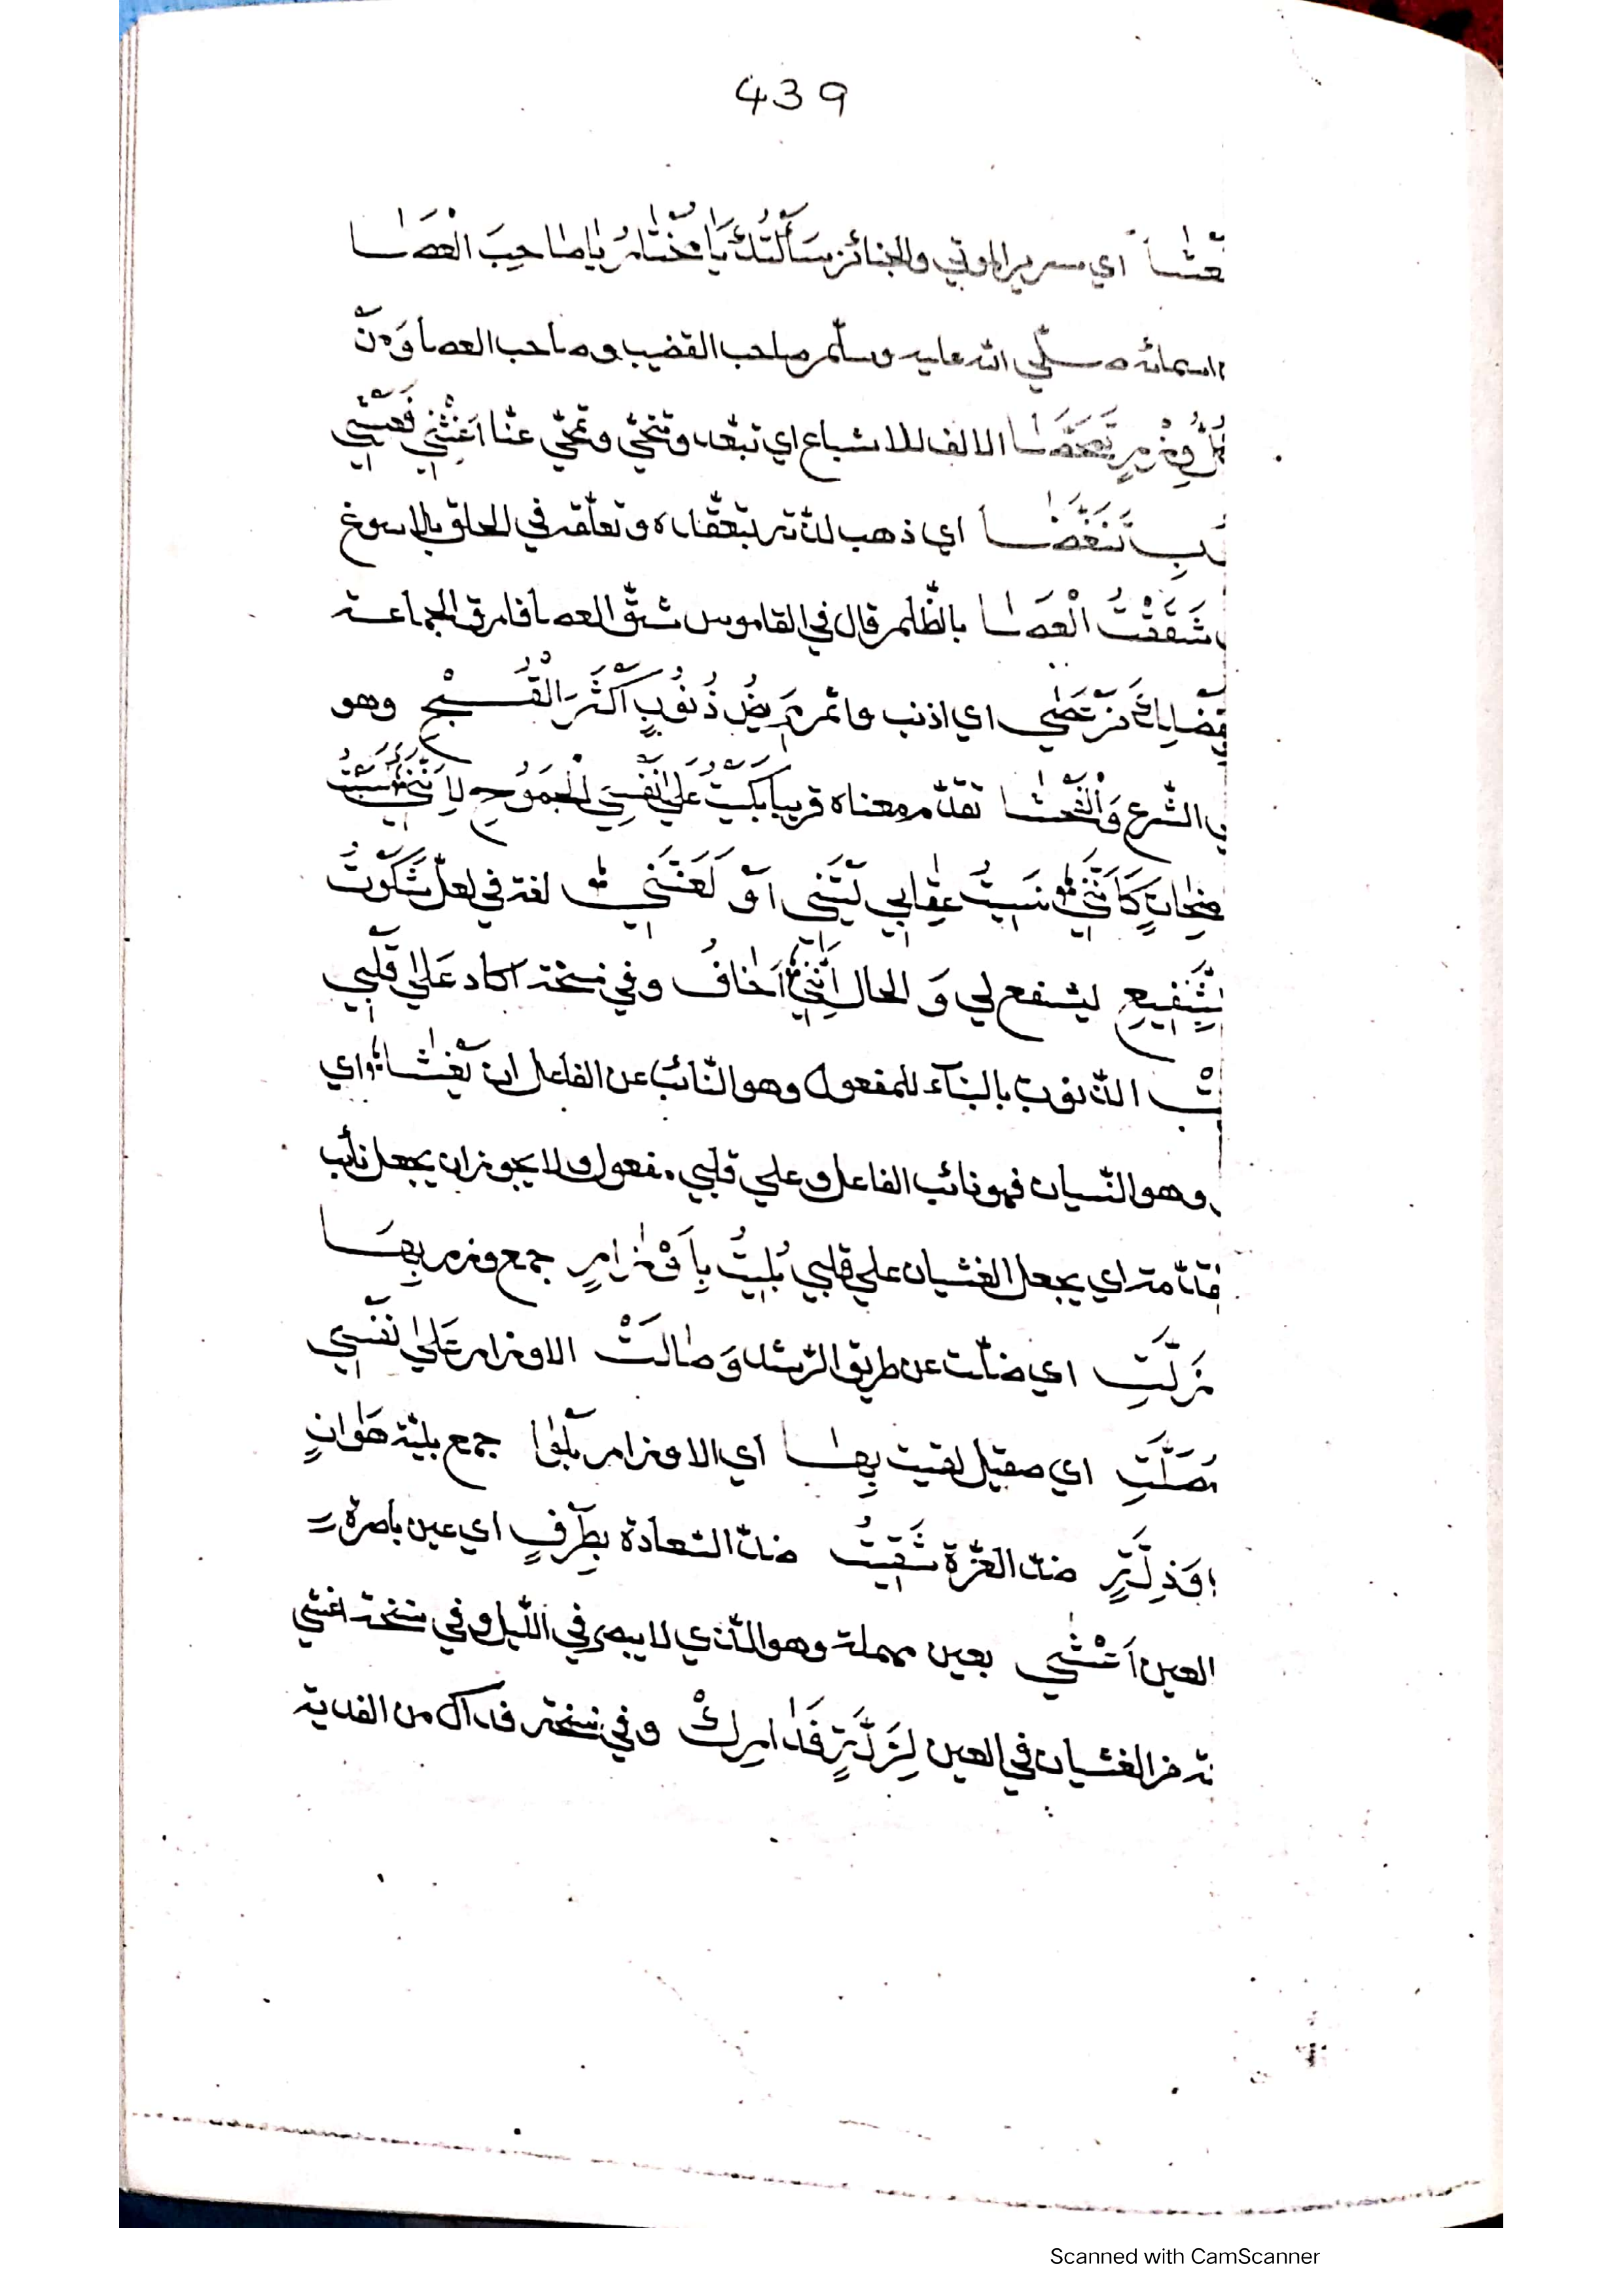 439
نَعْشًا اي سرير الموتي والجنائز سَأَلْتُكَ يَا مُخْتَارُ يَا صَاحِبَ الْعَصَا
اسمائه صلّي الله عليه وسلّم صاحب القضيب وصاحب العصا وَمِنْ
كُلِّ وِزْرٍ الالف للاشباع اي تبعّد وتنحّي وتمحّي عنّا اَغِثْنِي
تَنَغَّصَا اي ذهب لذته بتعقّده وتعلّقه في الحلق بلا سوغ
شَقَقْتُ الْعَصَا بالظّلم قال في القاموس شقّ العصا فارق الجماعة
اي اذنب واثم مَرِيضُ ذُنُوبٍ اَكْثَرَ الْقُبْحِ وهو
الشّرع وَالْفُحْشَا تقدّم معناه قريبا بَكَيْتُ عَلَي نَفْسِي الْجَمُوحِ لِاَنَّنِي
كَاَنَّنِي نَسِيتُ عِقَابِي لَيْتَنِي اَوْ لَعَنَّنِي لغة في لعلّ شَكَوْتُ
شَفِيعِ ليشفع لي وَ الحال اَنَّنِي اَخَافُ وفي نسخة اكاد عَلَي قَلْبِي
الذنوب بالبنآء للمفعول وهو النّائب عن الفاعل ان يُغْشَا اي
وهو النّسيان فهو نائب الفاعل وعلي قلبي مفعول ولا يجوز ان يجعل نائب
اي يجعل الغشيان علي قلبي بُلِيتُ بِاَوْزَارٍ جمع وزر بِهَا
زَلَّتِ اي ضلّت عن طريق الرّشد وَطَالَتْ الاوزار عَلَي نَفْسِي
اي صقيل لقيت بِهَا اي الاوزار بَلَوَا جمع بليّة هَوَانٍ
وَذِلَّةٍ ضدّ العزّة شَقِيتُ ضدّ السّعادة بِطَرْفٍ اي عين باصرة
العين اَعْشَي بعين مهملة وهو الّذي لا يبصر في اللّيل وفي نسخة اغشي
من الغشيان في العين لِزَلَّةٍ وفي نسخة فداك من الفدية
Scanned with CamScanner